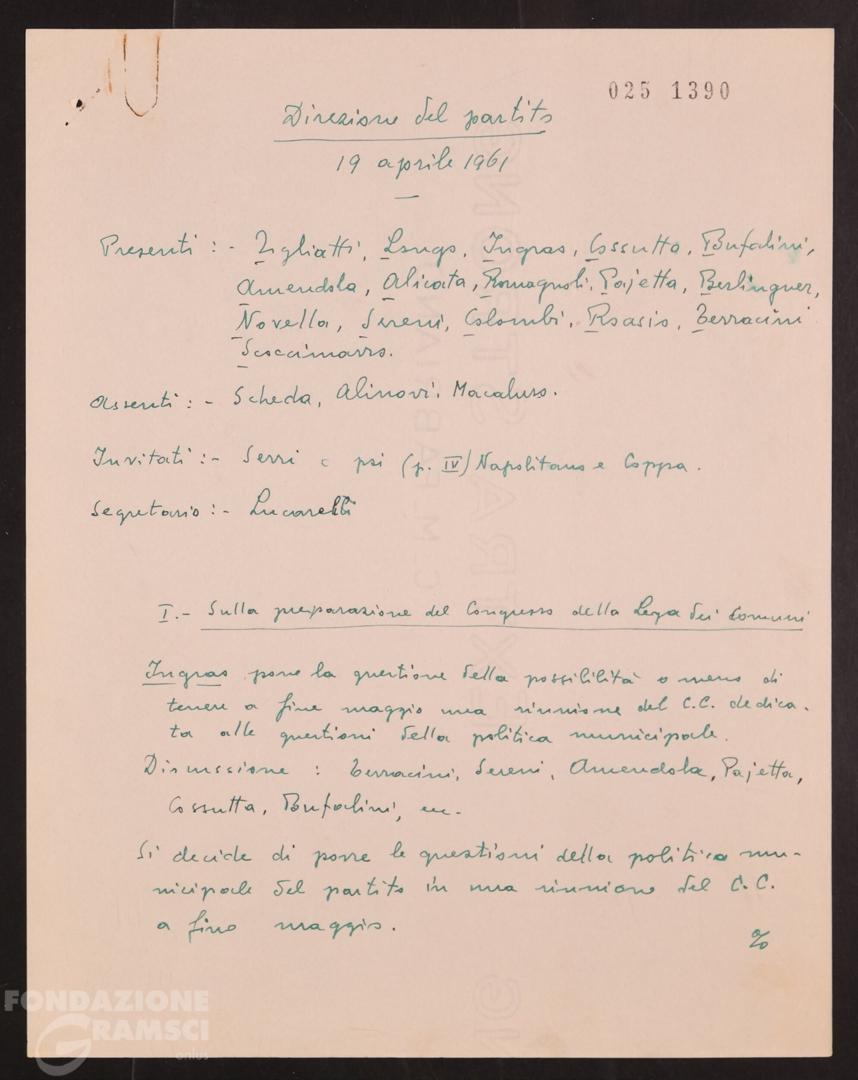 025 1390
Direzione del partito
19 aprile 1961
Presenti : - Togliatti, Longo, Ingrao, Cossutta, Bufalini,
Amendola, Alicata, Romagnoli, Pajetta, Berlinguer,
Novella, Sereni, Colombi, Roasio, Terracini
Scoccimarro.
Assenti : - Scheda, Alinovi, Macaluso.
Invitati : - Serri e poi (p. IV) Napolitano e Coppa.
Segretario : - Lucarelli
I. - Sulla preparazione del Congresso della Lega dei Comuni
Ingrao pone la questione della possibilità o meno di
tenere a fine maggio una riunione del C.C. dedica-
ta alle questioni della politica municipale.
Discussione : Terracini, Sereni, Amendola, Pajetta,
Cossutta, Bufalini, ecc.
Si decide di porre le questioni della politica mu-
nicipale del partito in una riunione del C.C.
a fine maggio.
%
FONDAZIONE
GRAMSCI
onlus